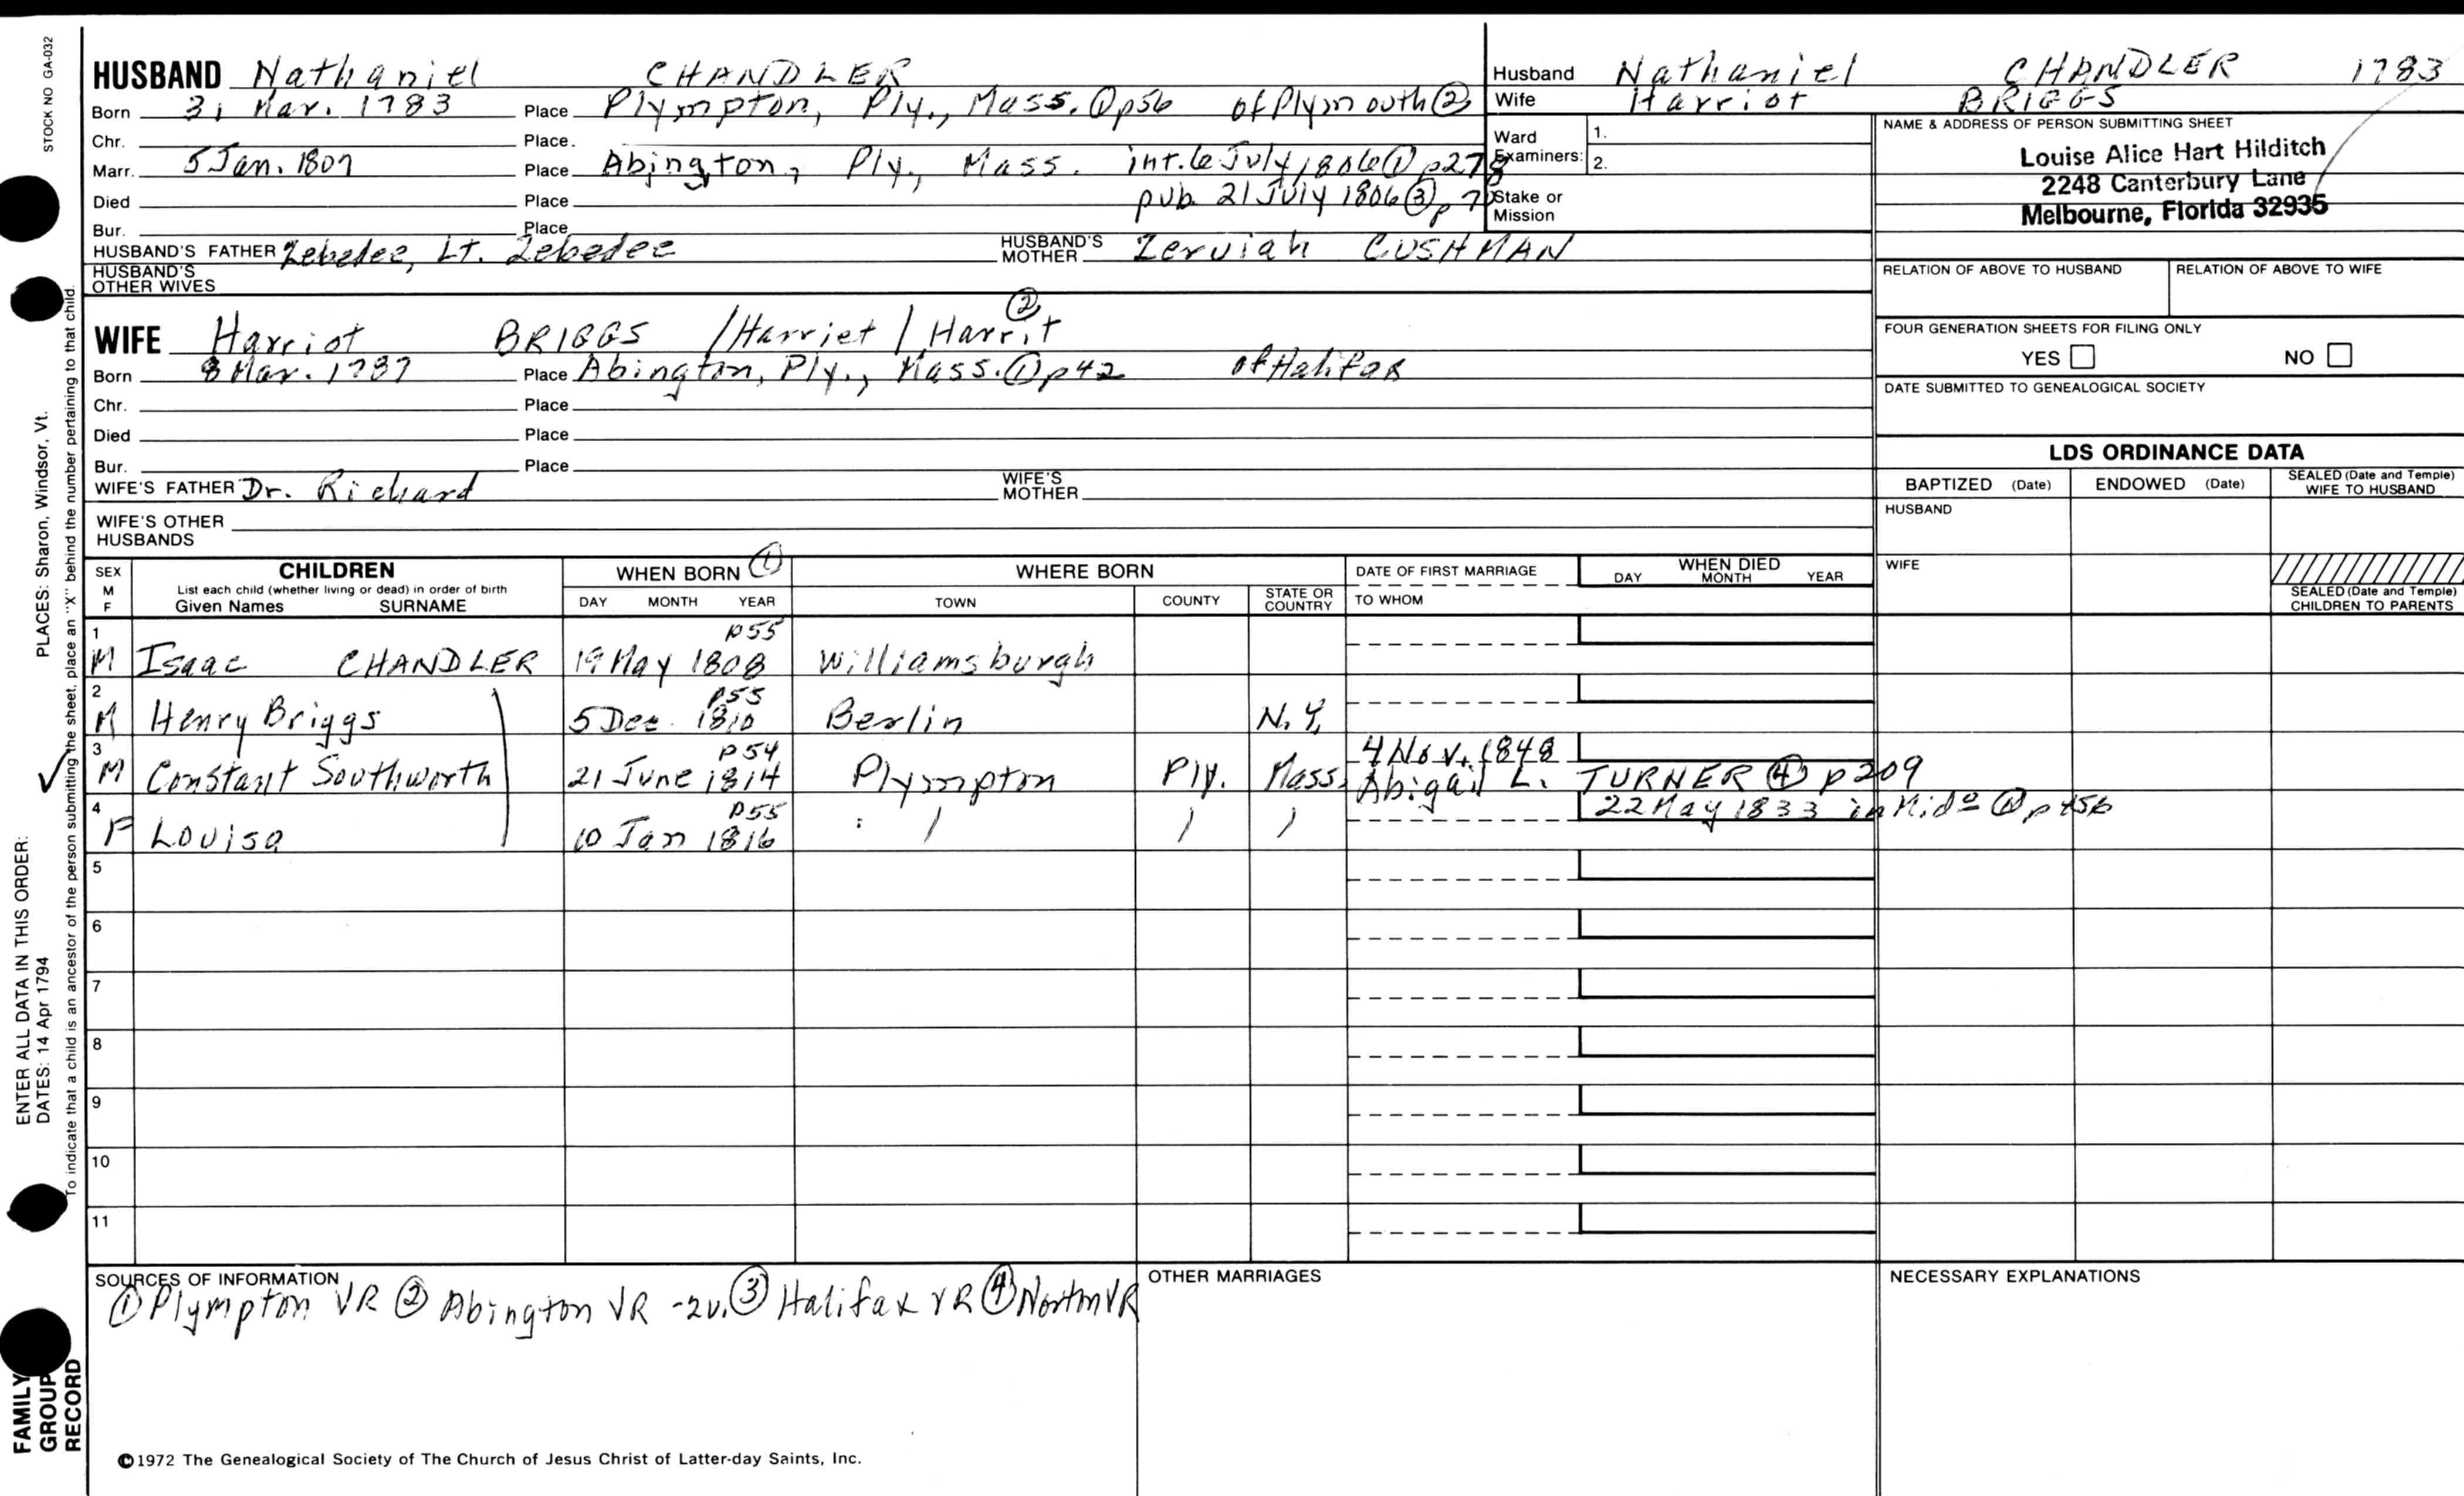 STOCK NO GA-032
HUSBAND Nathaniel CHANDLER
Born 31 Mar. 1783 Place Plympton, Ply., Mass. ① p56 of Plymouth ②
Chr. Place.
Marr. 5 Jan. 1807 Place Abington, Ply., Mass. int. 6 July 1806 ① p278
pub. 21 July 1806 ③ p 7
Died Place
Bur. Place
HUSBAND'S FATHER Zebedee, Lt. Zebedee HUSBAND'S MOTHER Zerviah CUSHMAN
HUSBAND'S OTHER WIVES
②
WIFE Harriot BRIGGS /Harriet / Harrit
Born 8 Mar. 1787 Place Abington, Ply., Mass. ① p42 of Halifax
Chr. Place
Died Place
Bur. Place
WIFE'S FATHER Dr. Richard WIFE'S MOTHER
WIFE'S OTHER HUSBANDS
Husband Nathaniel CHANDLER 1783
Wife Harriot BRIGGS
Ward Examiners: 1.
2.
Stake or Mission
NAME & ADDRESS OF PERSON SUBMITTING SHEET
Louise Alice Hart Hilditch
2248 Canterbury Lane
Melbourne, Florida 32935
RELATION OF ABOVE TO HUSBAND RELATION OF ABOVE TO WIFE
FOUR GENERATION SHEETS FOR FILING ONLY
YES NO
DATE SUBMITTED TO GENEALOGICAL SOCIETY
LDS ORDINANCE DATA
BAPTIZED (Date) ENDOWED (Date) SEALED (Date and Temple) WIFE TO HUSBAND
HUSBAND
WIFE
SEALED (Date and Temple) CHILDREN TO PARENTS
SEX M F CHILDREN
List each child (whether living or dead) in order of birth
Given Names SURNAME
WHEN BORN ①
DAY MONTH YEAR
WHERE BORN
TOWN COUNTY STATE OR COUNTRY
DATE OF FIRST MARRIAGE
TO WHOM
WHEN DIED
DAY MONTH YEAR
1 p55
M Isaac CHANDLER 19 May 1808 Williamsburgh
2 p55
M Henry Briggs 5 Dec. 1810 Berlin N.Y.
3 p54 4 Nov. 1848
M Constant Southworth 21 June 1814 Plympton Ply. Mass. Abigail L. TURNER ④ p209
4 p55 22 May 1833 in
F Louisa 10 Jan 1816 : / / /
5
6
7
8
9
10
11
SOURCES OF INFORMATION
① Plympton VR ② Abington VR -2v. ③ Halifax VR ④ Norton VR
OTHER MARRIAGES
NECESSARY EXPLANATIONS
©1972 The Genealogical Society of The Church of Jesus Christ of Latter-day Saints, Inc.
ENTER ALL DATA IN THIS ORDER:
DATES: 14 Apr 1794 PLACES: Sharon, Windsor, Vt.
To indicate that a child is an ancestor of the person submitting the sheet, place an "X" behind the number pertaining to that child.
FAMILY GROUP RECORD